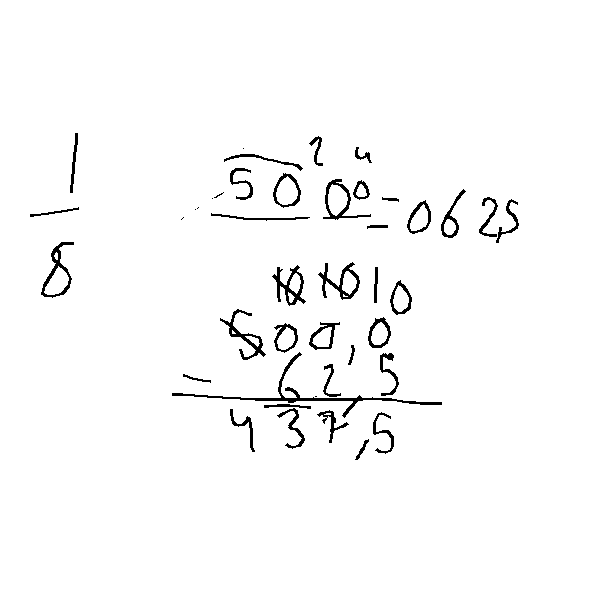 1
8
2 4
50 00 = 062,5
10 10 10
500,0
- 62 5
437,5